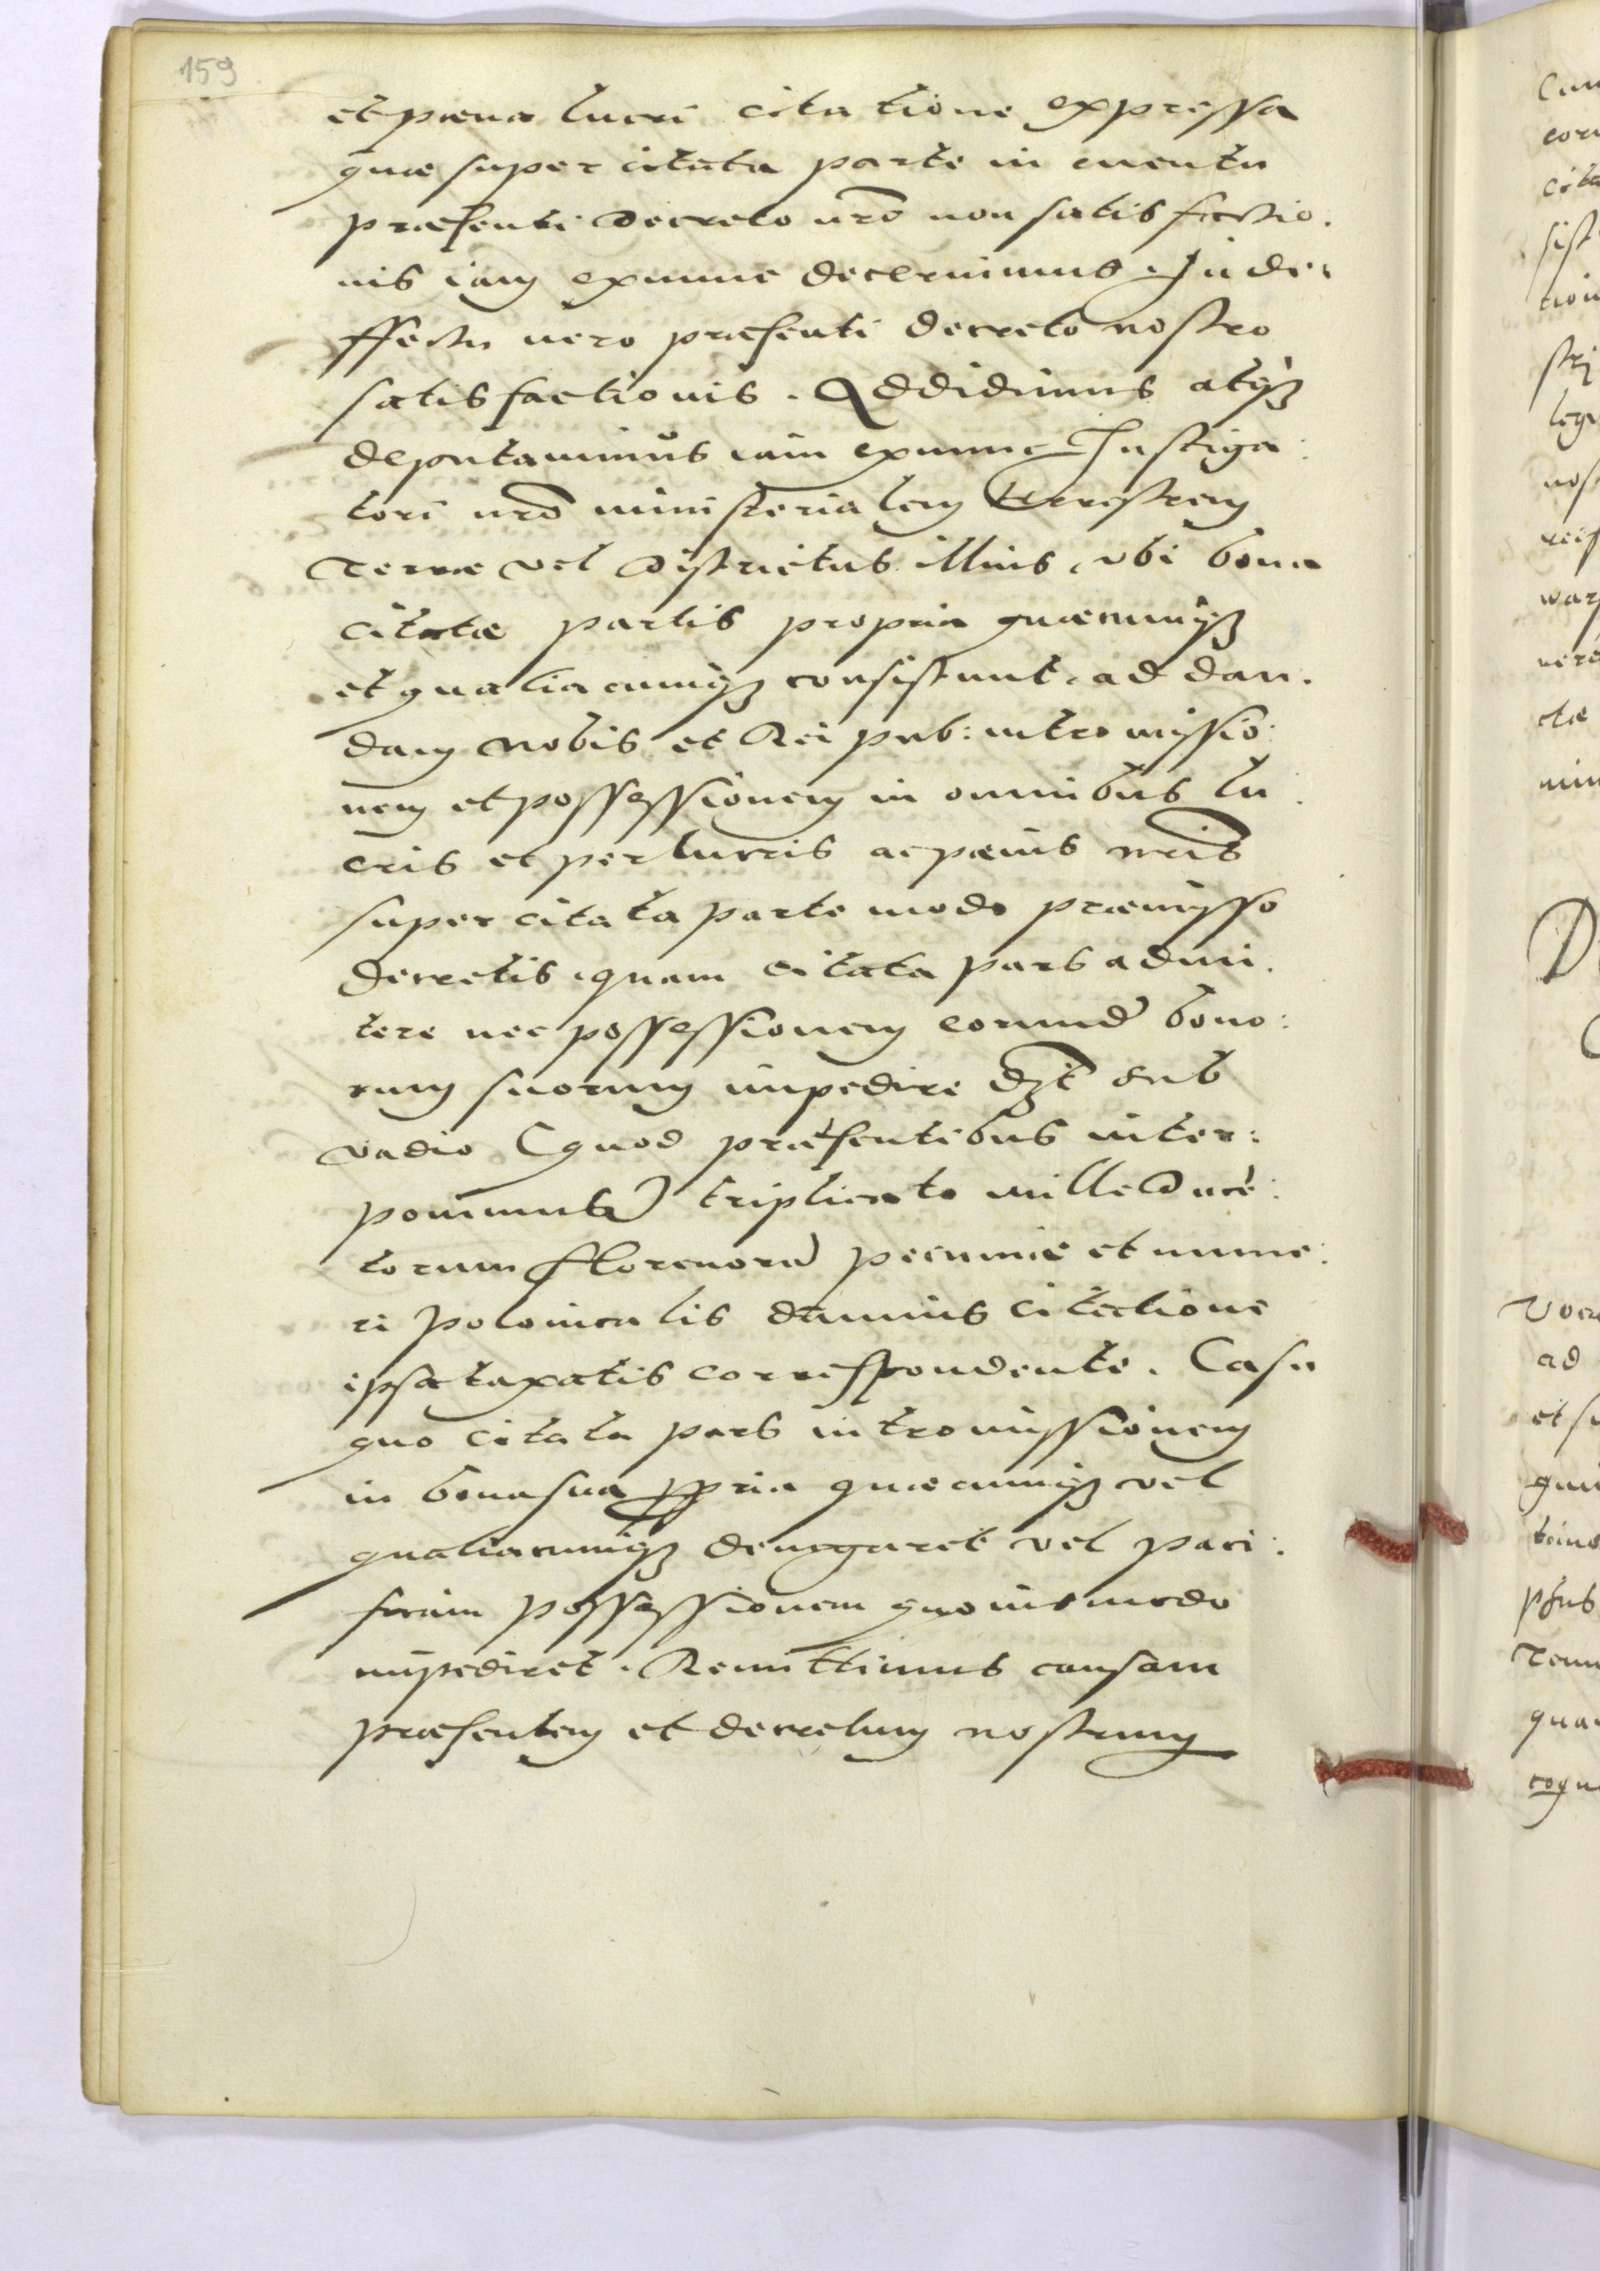 159
et pæna lucri citatione expressa
quæ super citata parte in euentu
præsenti Decreto nrō non satisfactio.
nis iam exnunc decernimus. In de.
ffectu uero præsenti decreto nostro
satisfactionis. Addidimus atq3
deputauimus iam exnunc Instiga:
tori nrō ministerialem terrestrem
Terræ vel Districtus illius, vbi bona
citatæ partis propria quæcumq3
et qualiacumq3 consistunt, ad dan.
dam nobis et Rei pub: intromissio:
nem et possessionem in omnibus lu
cris et perlucris ac pænis nrīs
super citata parte modo præmisso
decretis, quam citata pars admi.
tere nec possessionem eorund bono:
rum suorum impedire dzt sub
vadio (quod præsentibus inter:
ponimus) triplicato mille Duce:
torum florenorū pecuniæ et nume:
ri polonicalis damnis citatione
ipsa taxatis correspondente. Casu
quo citata pars intromissionem
in bona sua ppria quæcumq3 vel
qualiacumq3 denegaret vel paci:
ficam possessionem quouismodo
impediret. Remittimus causam
præsentem et decretum nostrum